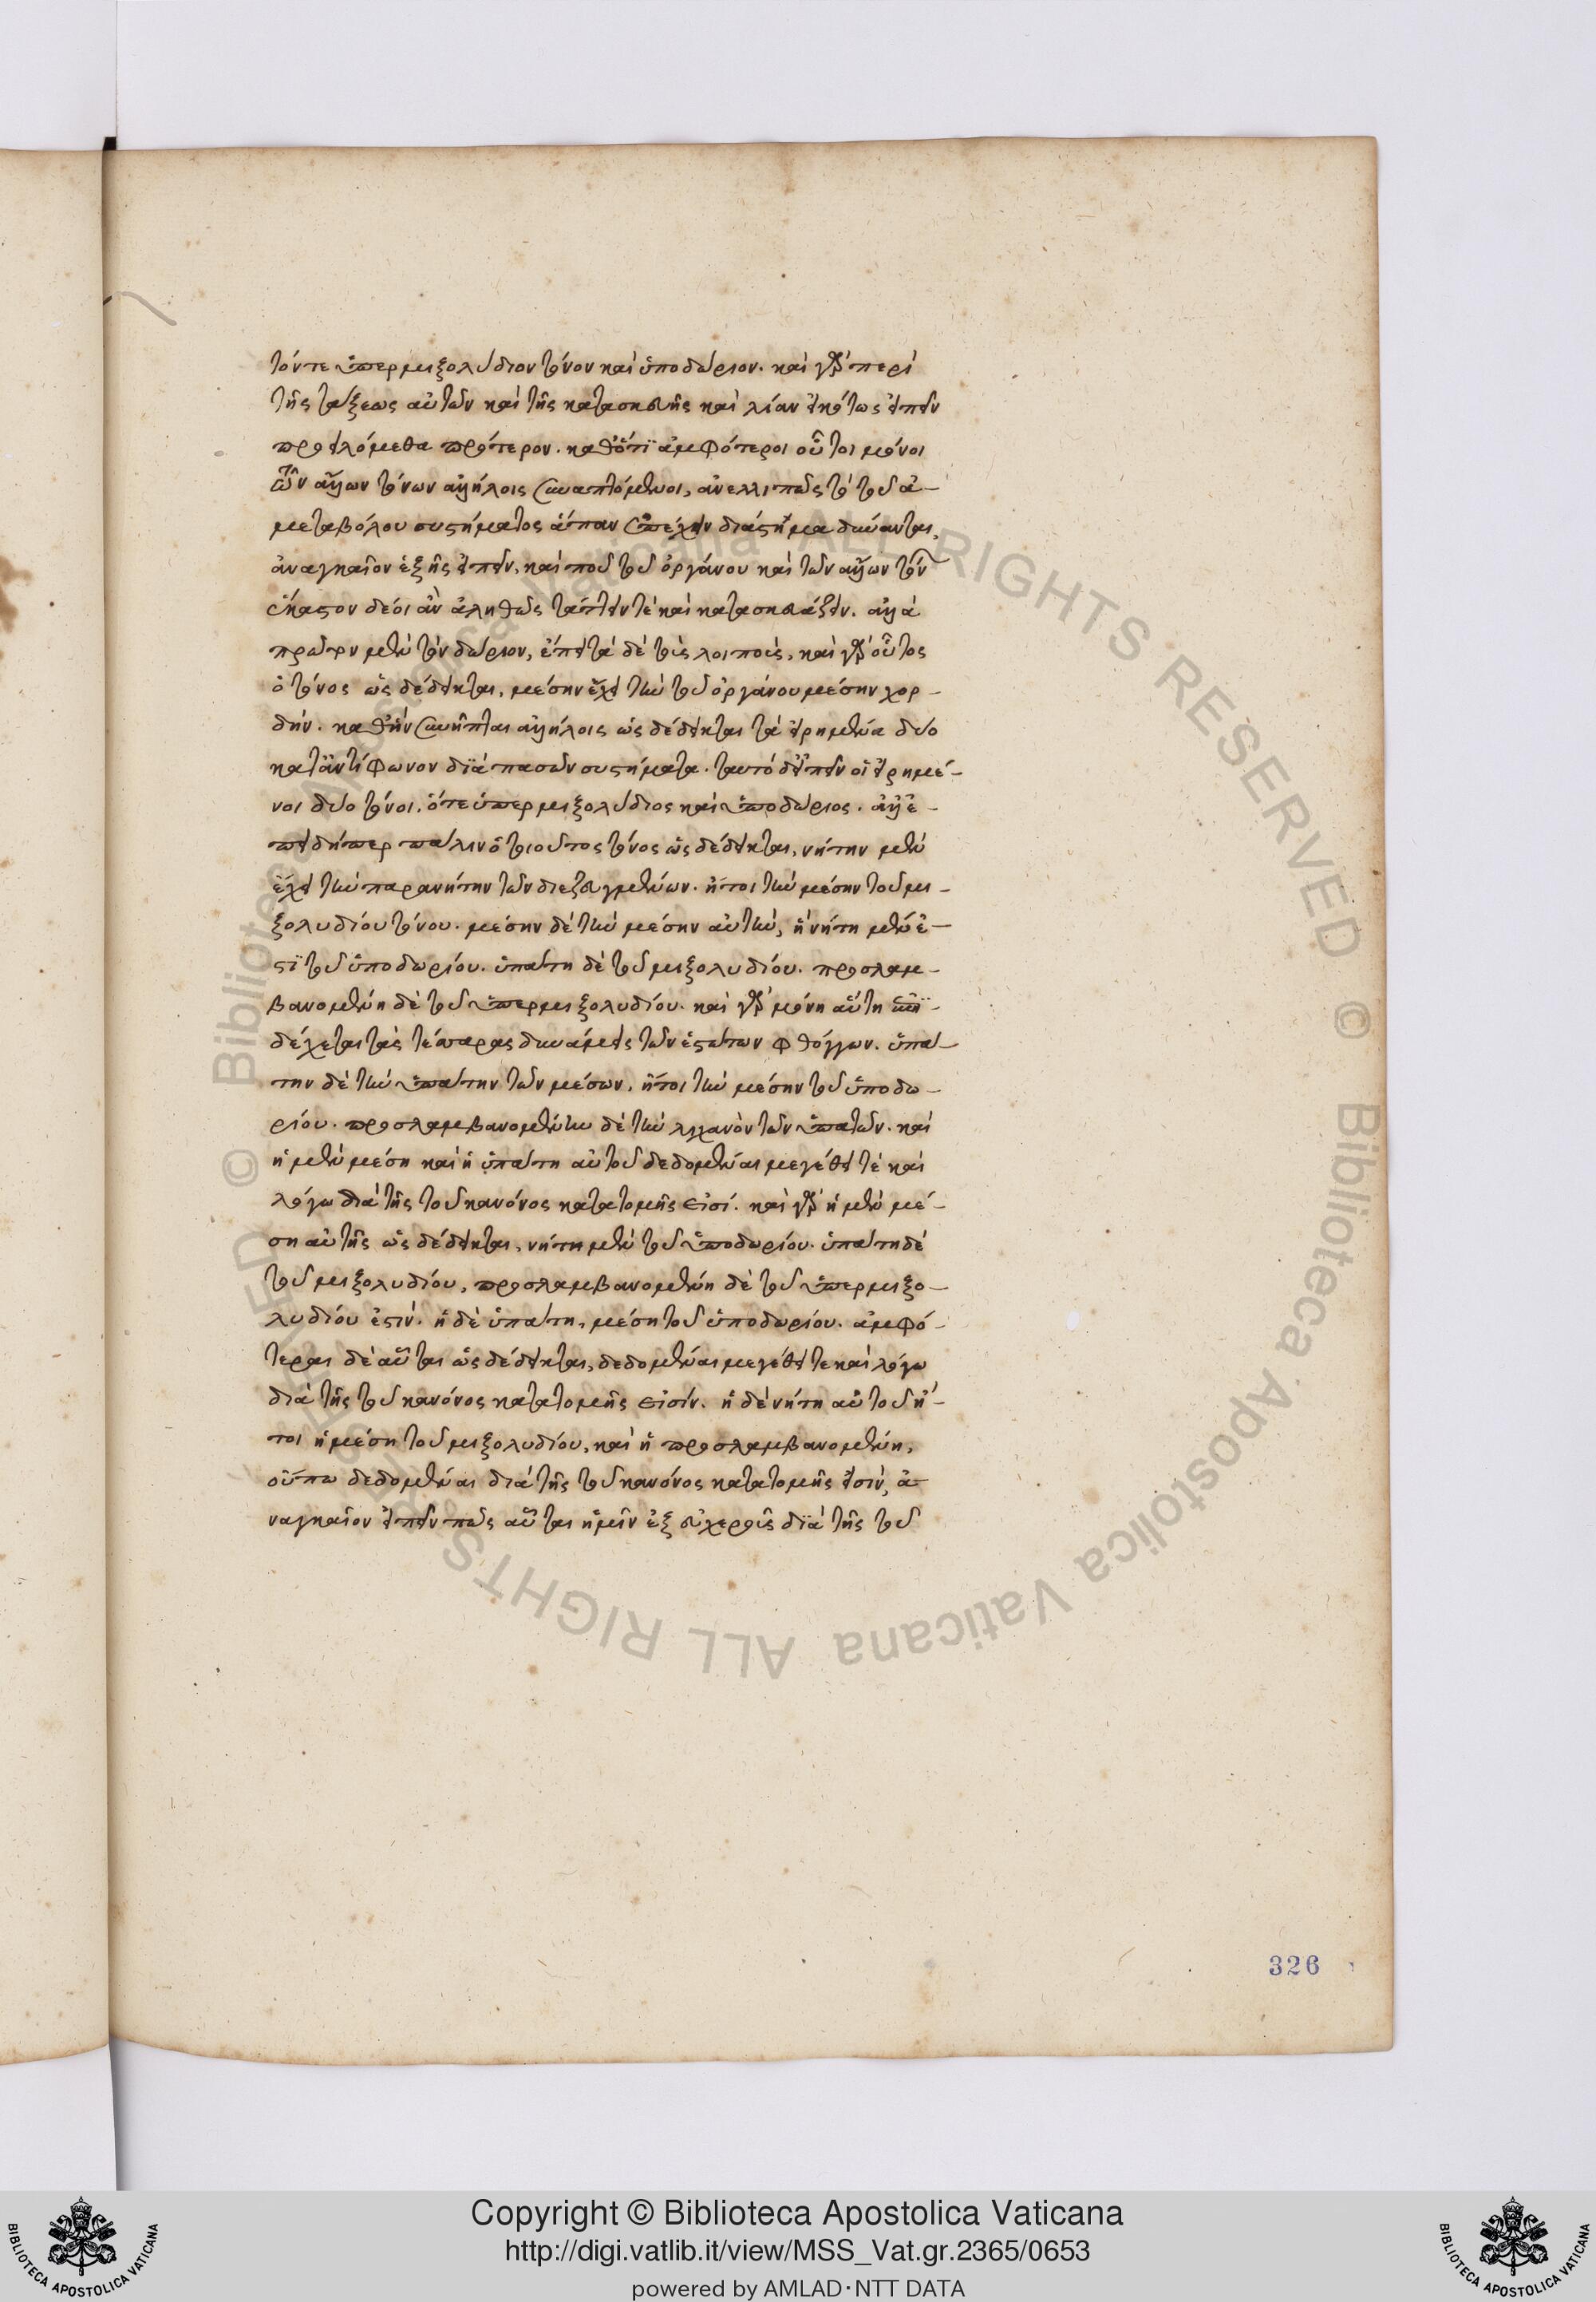 τόντε ὑπερμιξολύδιον τόνον καὶ ὑποδώριον. καὶ γὰρ περὶ
τῆς τάξεως αὐτῶν καὶ τῆς κατασκευῆς καὶ λίαν εἰκότως εἰπεῖν
προειλόμεθα πρότερον. καθότι ἀμφότεροι οὗτοι μόνοι
τῶν ἄλλων τόνων ἀλλήλοις συναπτόμενοι, ἀνελλιπῶς τὸ τοῦ ἀ-
μεταβόλου συστήματος ἅπαν ἐπέχειν διάστημα δύνανται,
ἀναγκαῖον ἑξῆς εἰπεῖν, καὶ ποῦ τοῦ ὀργάνου καὶ τῶν ἄλλων τόνων
ἕκαστον δέοι ἂν ἀληθῶς τάττειν τὲ καὶ κατασκευάζειν. ἀλλὰ
πρῶτον μὲν τὸν δώριον, ἔπειτα δὲ τοὺς λοιποὺς, καὶ γὰρ οὗτος
ὁ τόνος ὡς δέδεικται, μέσην ἔχει τὴν τοῦ ὀργάνου μέσην χορ-
δήν. καθ' ἣν συνῆπται ἀλλήλοις ὡς δέδεικται τὰ εἰρημένα δύο
κατ' ἀντίφωνον διὰ πασῶν συστήματα. ταυτὸ δ' εἰπεῖν οἱ εἰρημέ-
νοι δύο τόνοι. ὅτε ὑπερμιξολύδιος καὶ ὑποδώριος. ἀλλ' ἐ-
πειδήπερ πάλιν ὁ τοιοῦτος τόνος ὡς δέδεικται, νήτην μὲν
ἔχει τὴν παρανήτην τῶν διεζευγμένων. ἤτοι τὴν μέσην τοῦ μι-
ξολυδίου τόνου. μέσην δὲ τὴν μέσην αὐτὴν, ἡ νήτη μὲν ἐ-
στὶ τοῦ ὑποδωρίου. ὑπάτη δὲ τοῦ μιξολυδίου. προσλαμ-
βανομένη δὲ τοῦ ὑπερμιξολυδίου. καὶ γὰρ μόνη αὕτη
δέχεται τὰς τέσσαρας δυνάμεις τῶν ἑστώτων φθόγγων. ὑπά-
την δὲ τὴν ὑπάτην τῶν μέσων. ἤτοι τὴν μέσην τοῦ ὑποδω-
ρίου. προσλαμβανομένην δὲ τὴν λιχανὸν τῶν ὑπατῶν. καὶ
ἡ μὲν μέση καὶ ἡ ὑπάτη αὐτοῦ δεδομέναι μεγέθει τὲ καὶ
λόγω διὰ τῆς τοῦ κανόνος κατατομῆς εἰσί. καὶ γὰρ ἡ μὲν μέ-
ση αὐτῆς ὡς δέδεικται, νήτη μὲν τοῦ ὑποδωρίου. ὑπάτη δὲ
τοῦ μιξολυδίου, προσλαμβανομένη δὲ τοῦ ὑπερμιξο-
λυδίου ἐστίν. ἡ δὲ ὑπάτη, μέση τοῦ ὑποδωρίου. ἀμφό-
τεραι δὲ αὗται ὡς δέδεικται, δεδομέναι μεγέθει τε καὶ λόγω
διὰ τῆς τοῦ κανόνος κατατομῆς εἰσίν. ἡ δὲ νήτη αὐτοῦ ἤ-
τοι ἡ μέση τοῦ μιξολυδίου, καὶ ἡ προσλαμβανομένη,
οὔπω δεδομέναι διὰ τῆς τοῦ κανόνος κατατομῆς εἰσίν, ἀ-
ναγκαῖον εἰπεῖν πῶς αὗται ἡμῖν ἐξ εὐχεροῦς διὰ τῆς τοῦ
326
© Biblioteca Apostolica Vaticana ALL RIGHTS RESERVED
Copyright © Biblioteca Apostolica Vaticana
http://digi.vatlib.it/view/MSS_Vat.gr.2365/0653
powered by AMLAD·NTT DATA
BIBLIOTECA APOSTOLICA VATICANA
BIBLIOTECA APOSTOLICA VATICANA